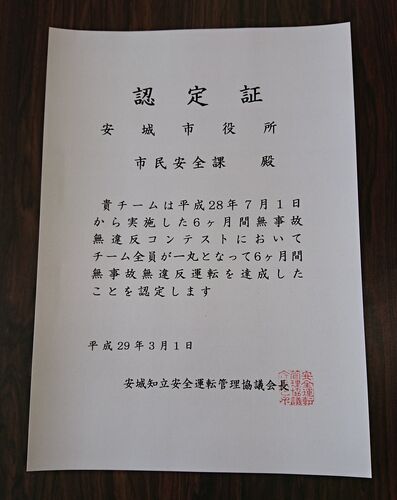 認定証
安城市役所
市民安全課 殿
貴チームは平成28年7月1日
から実施した6ヶ月間無事故
無違反コンテストにおいて
チーム全員が一丸となって6ヶ月間
無事故無違反運転を達成した
ことを認定します
平成29年3月1日
安城知立安全運転管理協議会長